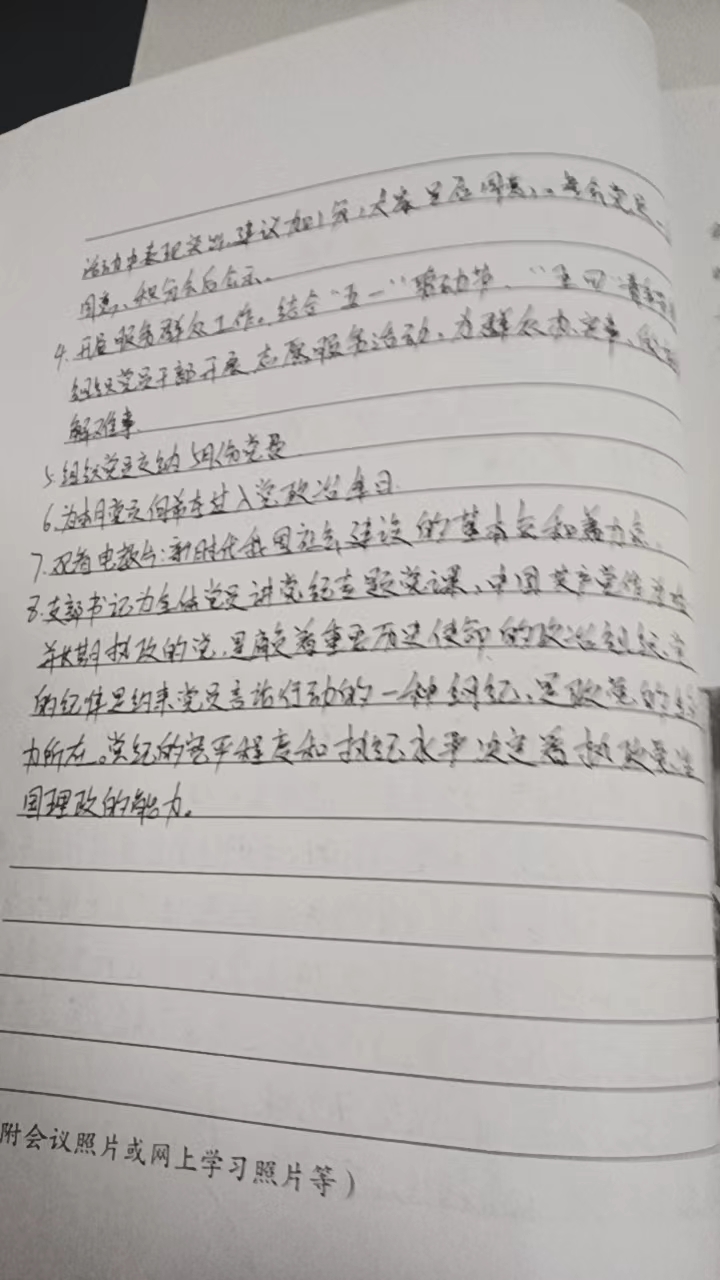 活动中表现突出,建议加1分,大家是否同意。与会党员一
同意,积分会后公示。
4.开展服务群众工作。结合“五一”劳动节、“五四”青年节
组织党员干部开展志愿服务活动,为群众办实事、
解难事
5.组织党员交纳5月份党费
6.为本月党员同志过入党政治生日
7.观看电教片:新时代我国社会建设的基本点和着力点
8.支部书记为全体党员讲党纪专题党课,中国共产党作为
并长期执政的党,是肩负着重要历史使命的政治组织,党
的纪律是约束党员言语行动的一种纲纪,是政党的
力所在。党纪的完平程度和执纪水平决定着执政党治
国理政的能力。
附会议照片或网上学习照片等)